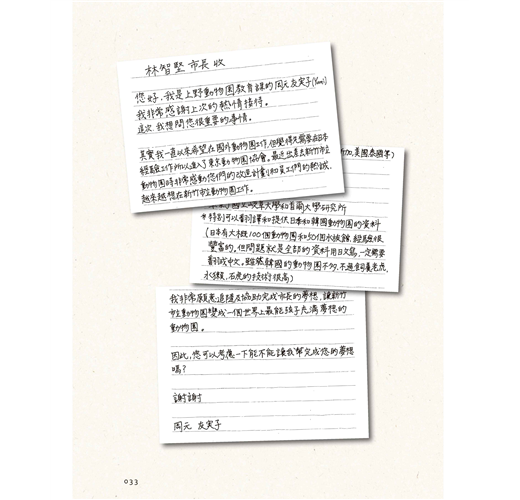 林智堅 市長 收
您好,我是上野動物園教育課的周元 友実子(Yumi)
我非常感謝上次的熱情接待。
這次我想問您很重要的事情。
其實我一直以來希望在國外動物園工作,但覺得先需要在日本
經驗工作所以進了東京動物園協會。最近出差去新竹市立
動物園時非常感動您們的改造計劃和員工們的熱誠,
越來越想在新竹市立動物園工作。
加,美國,泰國等)
大學和首爾大學研究所
*特別可以翻譯和提供日本和韓國動物園的資料
(日本有大概100個動物園和50個水族館,經驗很
豐富的。但問題就是全部的資料用日文寫,一定需要
翻成中文。雖然韓國的動物園不多,不過飼養老虎,
水獺,石虎的技術很高)
我非常願意追隨及協助完成市長的夢想,讓新竹
市立動物園變成一個世界上最能孩子充滿夢想的
動物園。
因此,您可以考慮一下能不能讓我幫完成您的夢想
嗎?
謝謝
周元 友実子
033